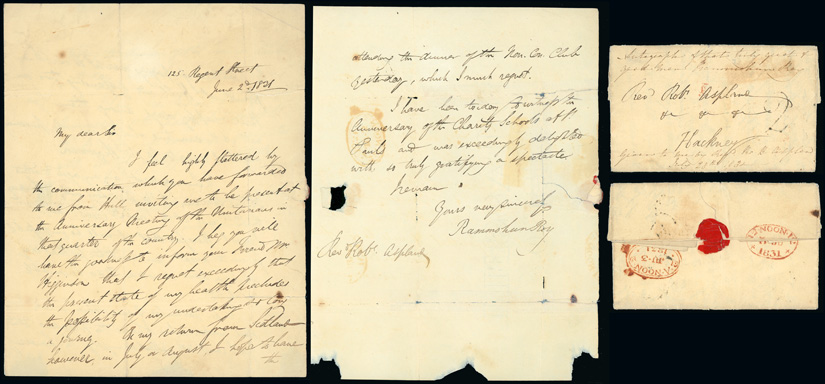 125 Regent Street
June 2d 1831
My dear Sir
I feel highly flattered by
the communication, which you have forwarded
to me from Hull inviting me to be present at
the Anniversary Meeting of the Unitarians in
that quarter of the country. I beg you will
have the goodness to inform your friend Mr
Higginson that I regret exceedingly that
the present state of my health precludes
the possibility of my undertaking so long
a journey. On my return from Scotland
however, in July or August I hope to have
th
attending the dinner of the Non. Con. Club
yesterday, which I much regret.
I have been to day to witness the
Anniversary of the Charity Schools at St
Pauls and was exceedingly delighted
with so truly gratifying a spectacle
I remain
Yours very sincerely
Rammohun Roy
Revd Robt Aspland
Autograph of that truly great &
good man Rammohun Roy
Revd Robt Aspland
Hackney
Given to me by Revd R. B. Aspland
LONDON
JU-3
1831
1831